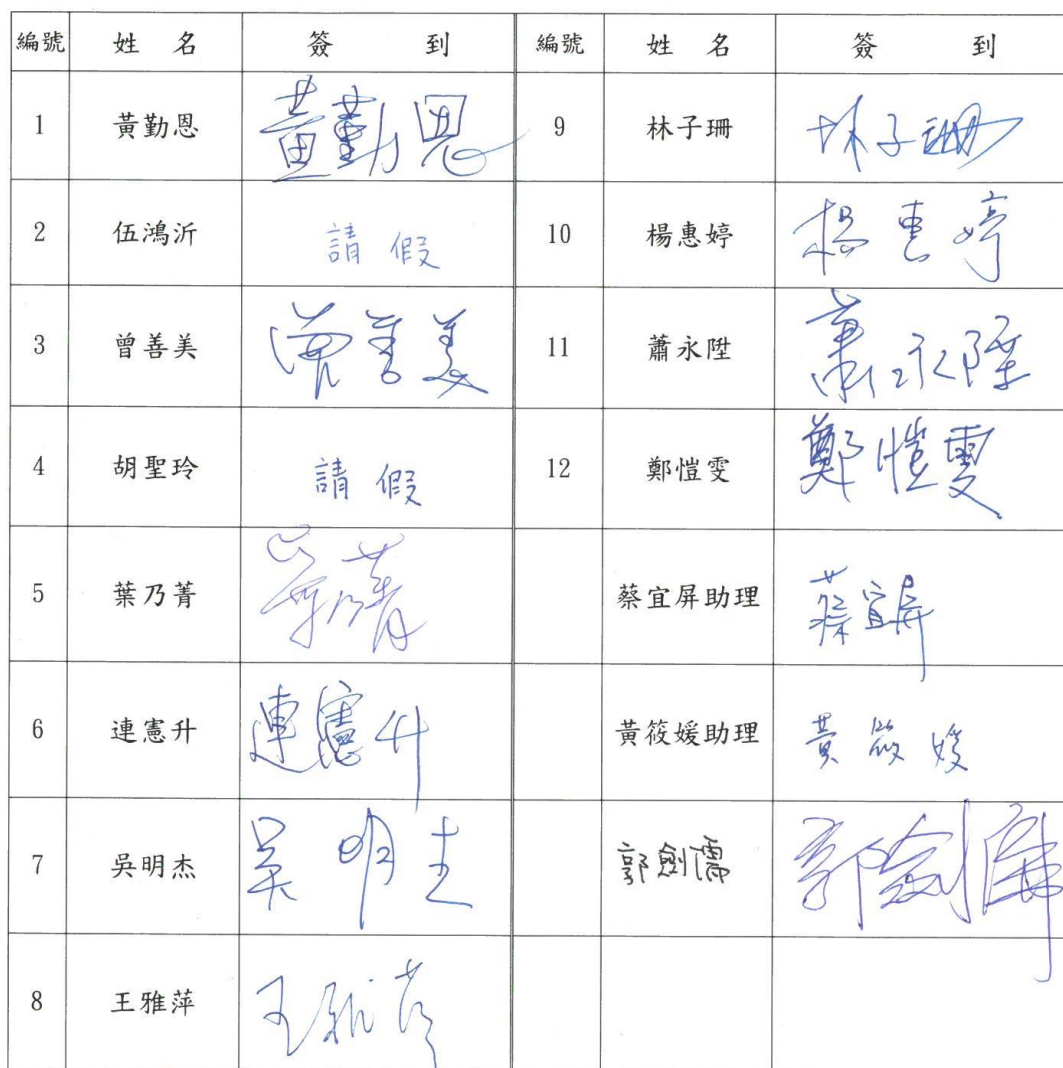 編號 姓名 簽到 編號 姓名 簽到
1 黃勤恩 黃勤恩 9 林子珊 林子珊
2 伍鴻沂 請假 10 楊惠婷 楊惠婷
3 曾善美 曾善美 11 蕭永陞 蕭永陞
4 胡聖玲 請假 12 鄭愷雯 鄭愷雯
5 葉乃菁 葉乃菁 蔡宜屏助理 蔡宜屏
6 連憲升 連憲升 黃筱媛助理 黃筱媛
7 吳明杰 吳明杰 郭劍儒 郭劍儒
8 王雅萍 王雅萍